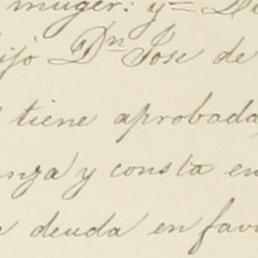 muger: y=
ijo Dn Jose de
tiene aprobada
nza y consta en
deuda en fav